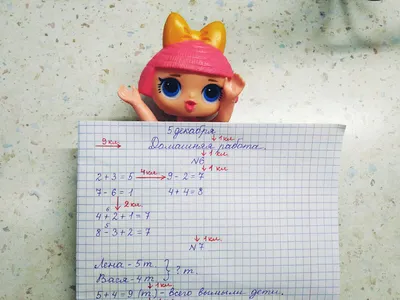 5 декабря
↓1кл.
9кл. Домашняя работа.
↓1кл.
№6
↓1кл.
2+3=5 4кл. 9-2=7
7-6=1 4+4=8
↓2кл.
6
4+2+1=7
5
8-3+2=7
↓1кл.
№7
Лена - 5т.
} ? т.
Вася - 4т.
↓1кл.
5+4=9 (т) - всего вымыли дети.